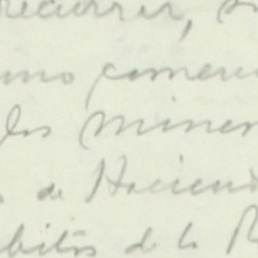 recurrir, s
uno comerci
los miner
s de Haciend
bitos de la R